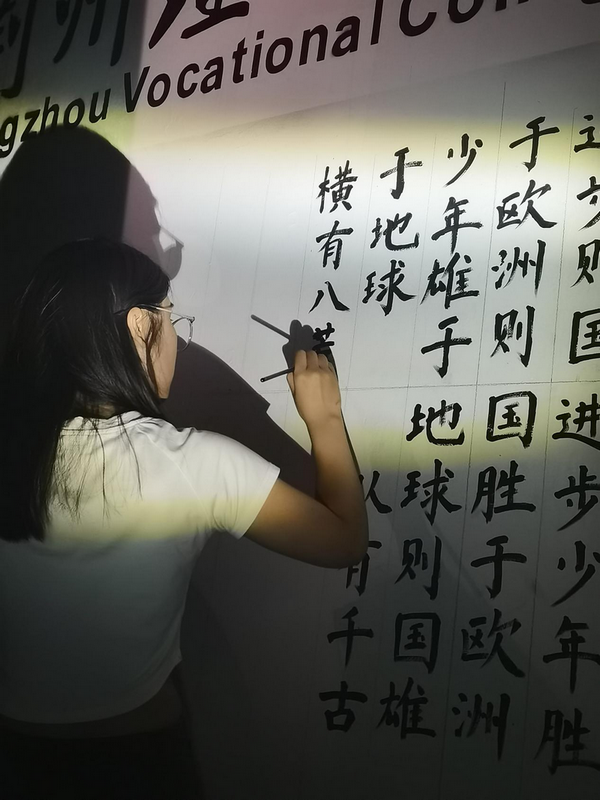 州
gzhou Vocational Co
则国进步少年胜
于欧洲则国胜于欧洲
少年雄于地球则国雄
于地球 有千古
横有八